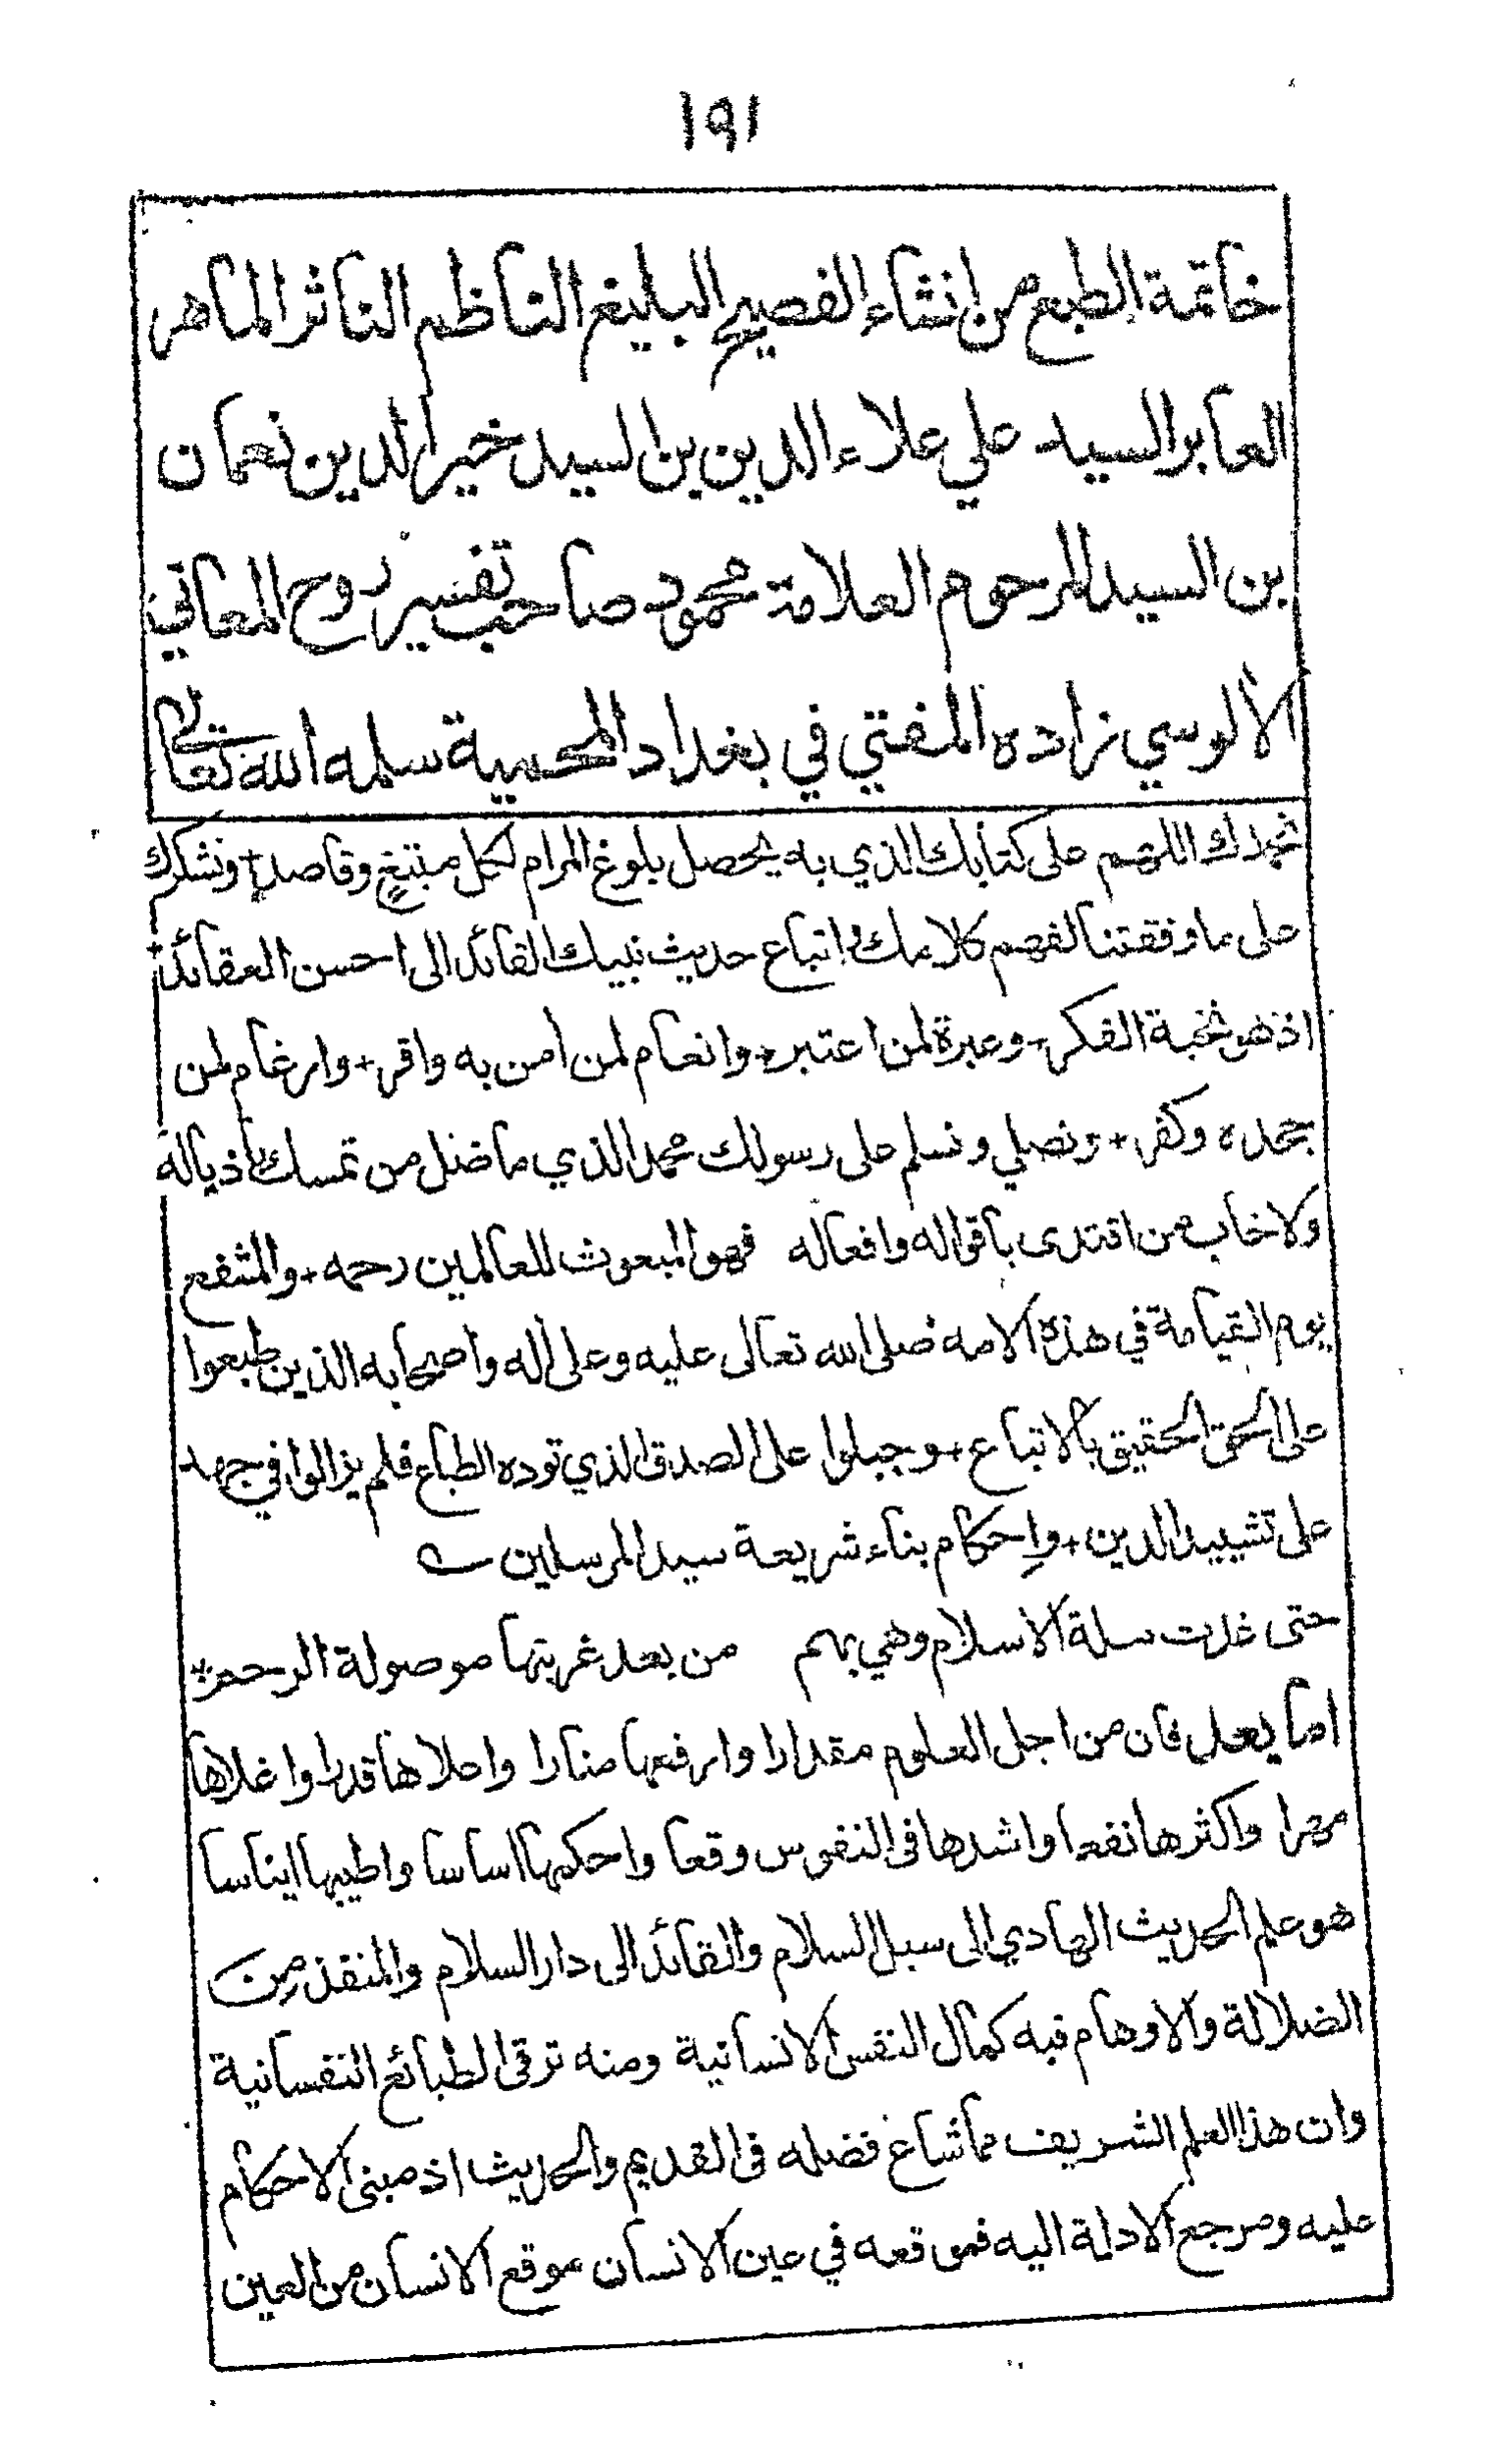 ١٩١
خاتمة الطبع من انشاء الفصيح البليغ الناظم الناثر الماهر
العابر السيد علي علاء الدين بن السيد خير الدين نعمان
بن السيد المرحوم العلامة محمود صاحب تفسير روح المعاني
الآلوسي زاده المفتي في بغداد المحمية سلمه الله تعالى
نحمدك اللهم على كتابك الذي به يحصل بلوغ المرام لكل مبتغٍ وقاصدٍ + ونشكرك
على ما وفقتنا لفهم كلامك واتباع حديث نبيك القائد الى احسن العقائد +
اذ هو نخبة الفكر + وعبرة لمن اعتبر + وانعام لمن أمن به واقر + وارغام لمن
جحده وكفر + ونصلي ونسلم على رسولك محمد الذي ما ضل من تمسك باذياله
ولا خاب من اقتدى باقواله وافعاله فهو المبعوث للعالمين رحمه + والمشفع
يوم القيامة في هذه الامه صلى الله تعالى عليه وعلى أله واصحابه الذين طبعوا
على الحق الحقيق بالاتباع + وجبلوا على الصدق الذي توده الطباع فلم يزالوا في جهد
على تشييد الدين + وإحكام بناء شريعة سيد المرسلين
حتى غدت سلة الاسلام وهي بهم من بعد غربتها موصولة الرحم +
اما بعد فان من اجل العلوم مقدارا وارفعها منارا واحلاها قدرا واغلاها
مهرا واكثرها نفعا واشدها فى النفوس وقعا واحكمها اساسا واطيبها ايناسا
هو علم الحديث الهادي الى سبل السلام والقائد الى دار السلام والمنقذ من
الضلالة والاوهام فبه كمال النفس الانسانية ومنه ترقى الطبائع النفسانية
وان هذا العلم الشريف مما شاع فضله فى القديم والحديث اذ مبنى الاحكام
عليه ومرجع الادلة اليه فموقعه في عين الانسان موقع الانسان من العين